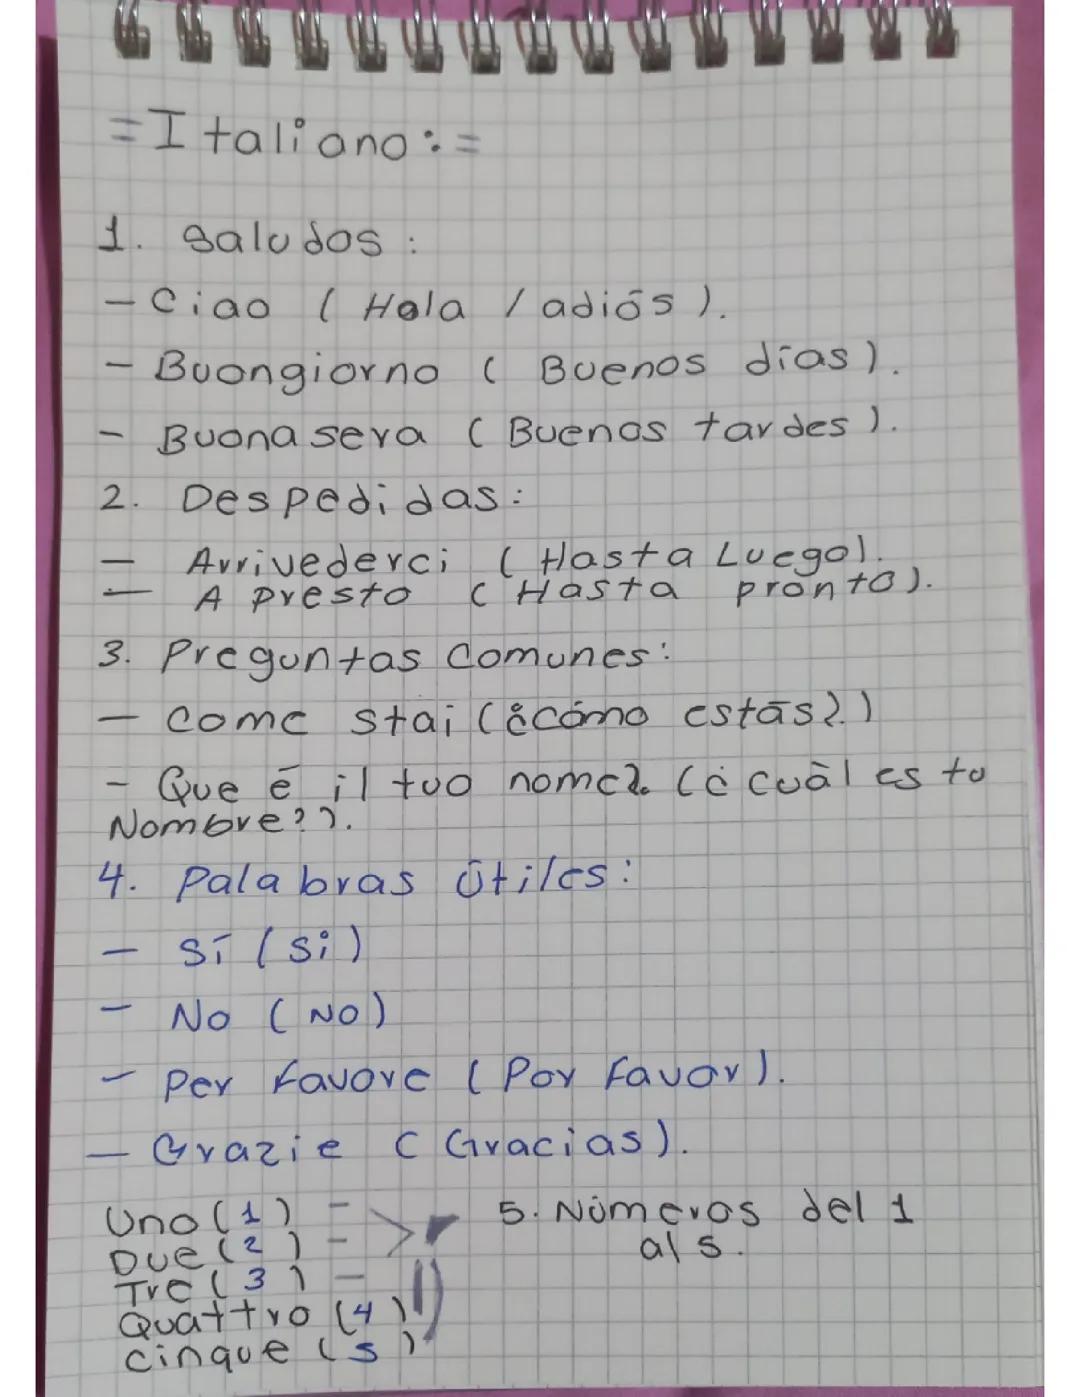 =Italiano:=
1. Saludos:
- Ciao (Hola / adiós).
- Buongiorno (Buenos días).
- Buona sera (Buenas tardes).
2. Despedidas:
- Arrivederci (Hasta Luego).
- A presto (Hasta pronto).
3. Preguntas comunes:
- Come stai (¿cómo estás?)
- Que é il tuo nome?. (¿cuál es tu
Nombre??).
4. Palabras útiles:
- Sí (Si)
- No (No)
- Per favore (Por favor).
- Grazie (Gracias).
5. Números del 1
al 5.
Uno (1) -
Due (2) -
Tre (3) -
Quattro (4)
cinque (5)